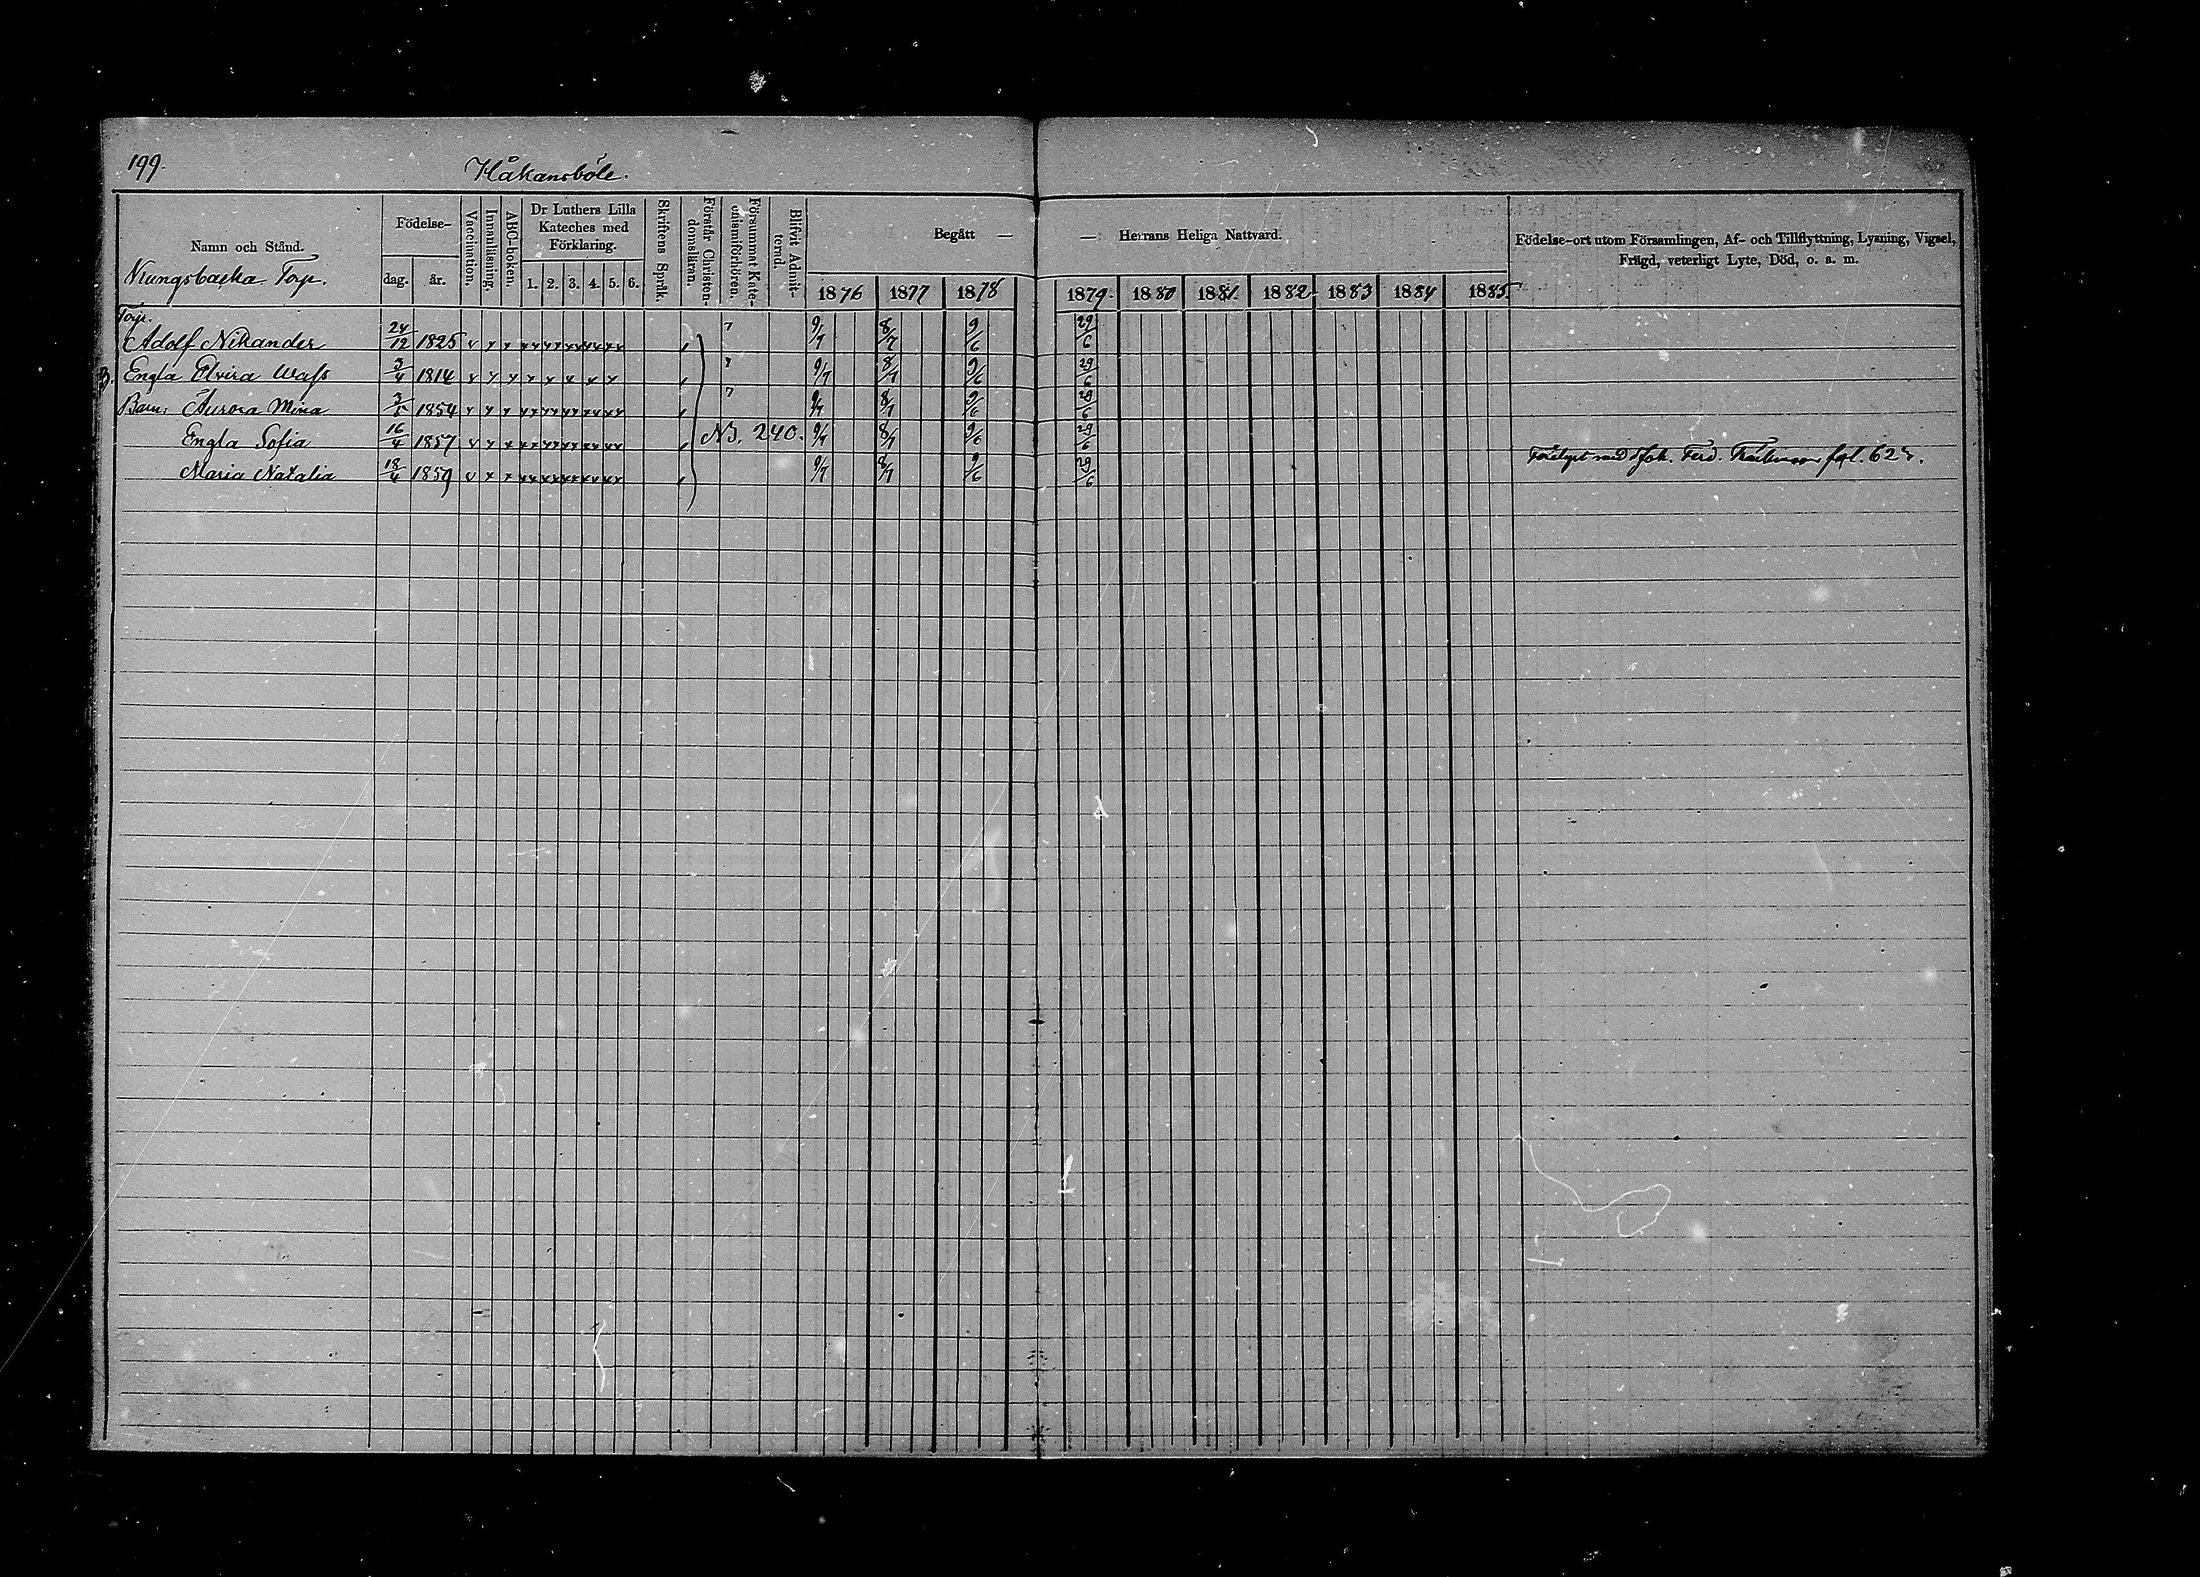 199. Håkansböle.
Namn och Stånd. Födelse- dag. år. Vaccination. Innanläsning. ABC-boken. Dr Luthers Lilla Kateches med Förklaring. 1. 2. 3. 4. 5. 6. Skriftens Språk. Förstår Christendomsläran. Försummat Katechismiförhören. Blifvit Admitterad. Begått — — Herrans Heliga Nattvard. Födelse-ort utom Församlingen, Af- och Tillflyttning, Lysning, Vigsel, Frägd, veterligt Lyte, Död, o. s. m.
Kungsbacka Torp. 1876 1877 1878 1879. 1880 1881. 1882 1883 1884 1885
Torp.
Adolf Nikander 24/12 1825 v 7 9/7 8/7 9/6 29/6
Engla Elvira Wass 3/4 1814 v 7 9/7 8/7 9/6 29/6
Barn: Aurora Mina 1854 v 7 9/7 8/7 9/6 29/6
Engla Sofia 16/4 1857 v NB. 240. 9/7 8/7 9/6 29/6
Maria Natalia 18/4 1859 v 9/7 8/7 9/6 29/6 med Joh. Ferd. fol.